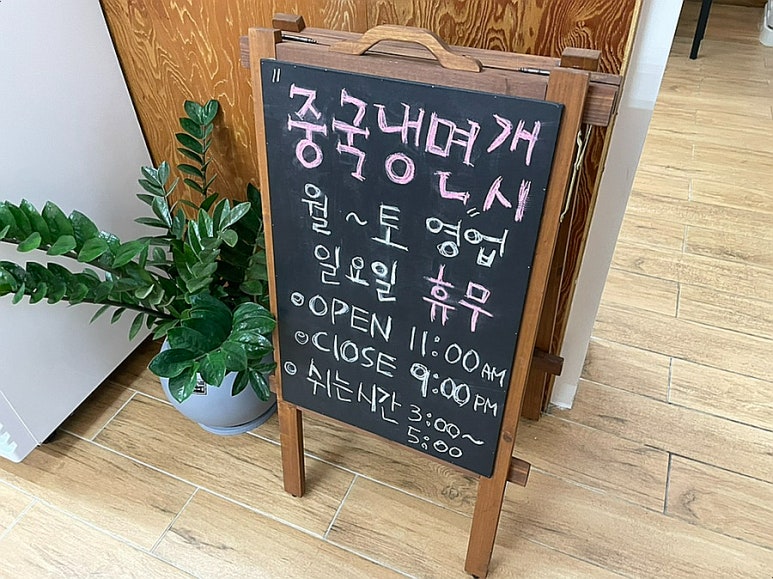 "중국냉면개시"
월~토 영업
일요일 휴무
OPEN 11:00 AM
ClOSE 9:00 PM
쉬는시간 3:00~
5:00